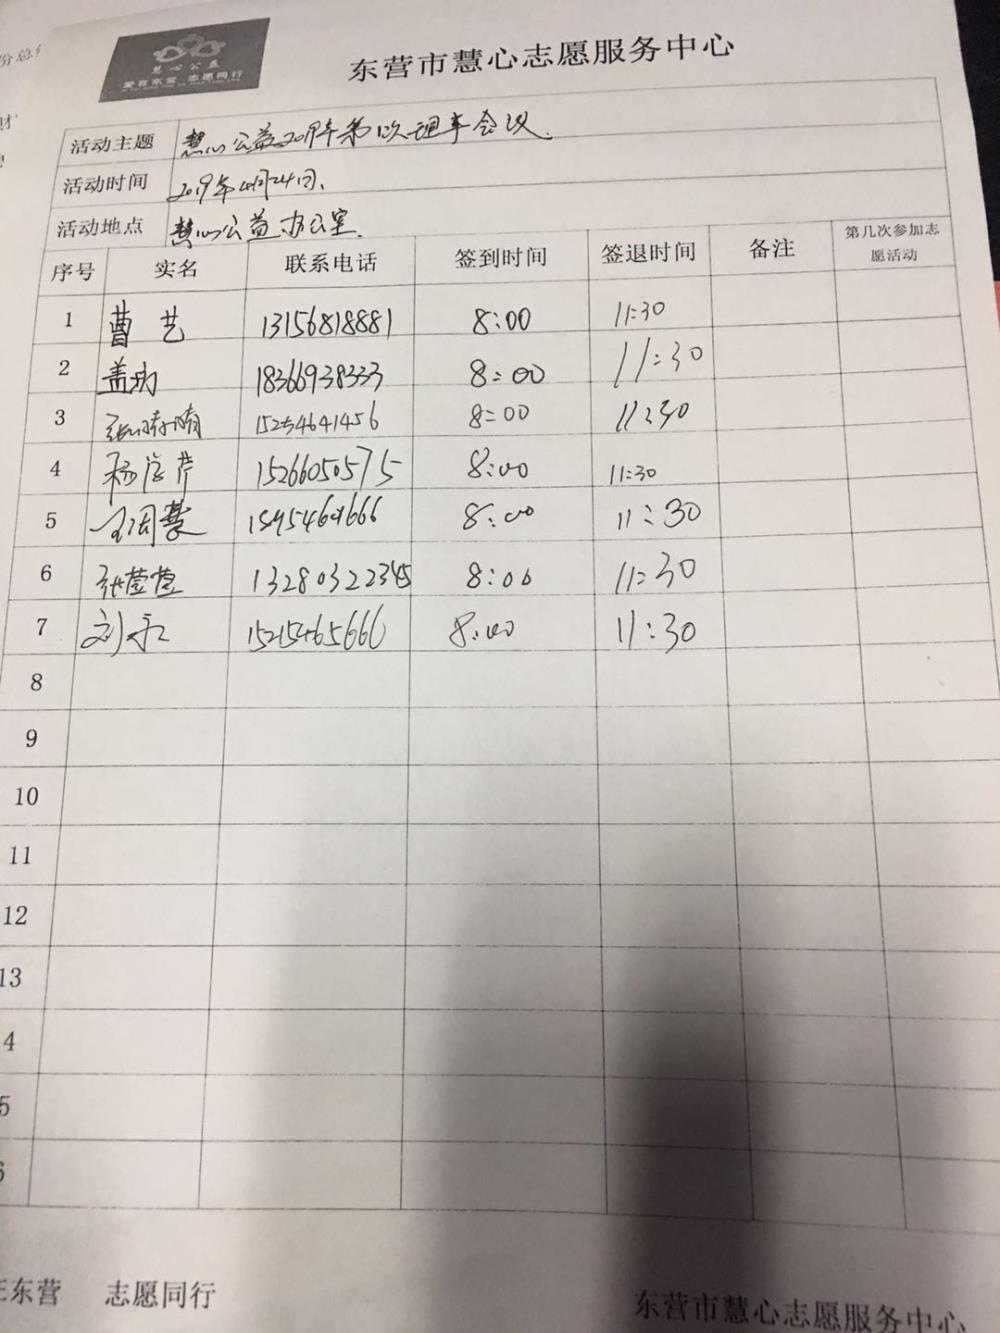 份总
财
慧心公益
爱在东营 志愿同行
东营市慧心志愿服务中心
活动主题 慧心公益2019年第1次理事会议.
活动时间 2019年4月24日.
活动地点 慧心公益办公室.
序号 实名 联系电话 签到时间 签退时间 备注 第几次参加志愿活动
1 曹艺 13156818881 8:00 11:30
2 盖 18366938333 8:00 11:30
3 张晴晴 15254641456 8:00 11:30
4 杨 芹 15266050575 8:00 11:30
5 王润慧 8:00 11:30
6 张莹莹 13280322345 8:00 11:30
7 刘永 15215465666 8:00 11:30
8
9
10
11
12
13
4
5
东营 志愿同行
东营市慧心志愿服务中心